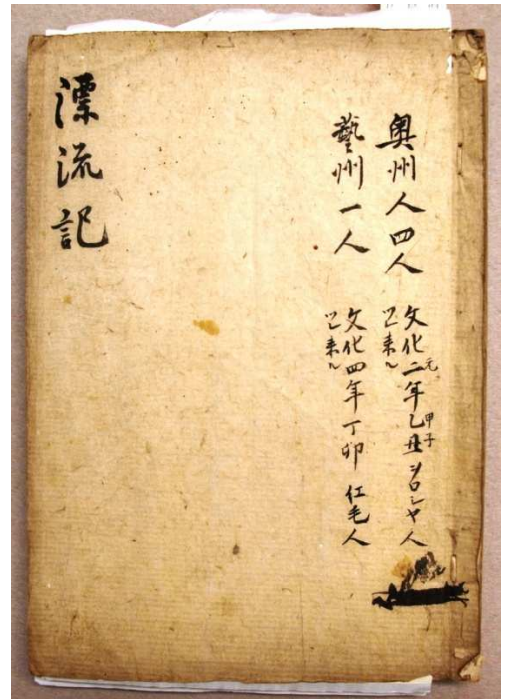 奥州人四人 文化二年乙丑ヲロシヤ人
元 甲子
ヨリ来ル
藝州一人 文化四年丁卯 紅毛人
ヨリ来ル
漂流記